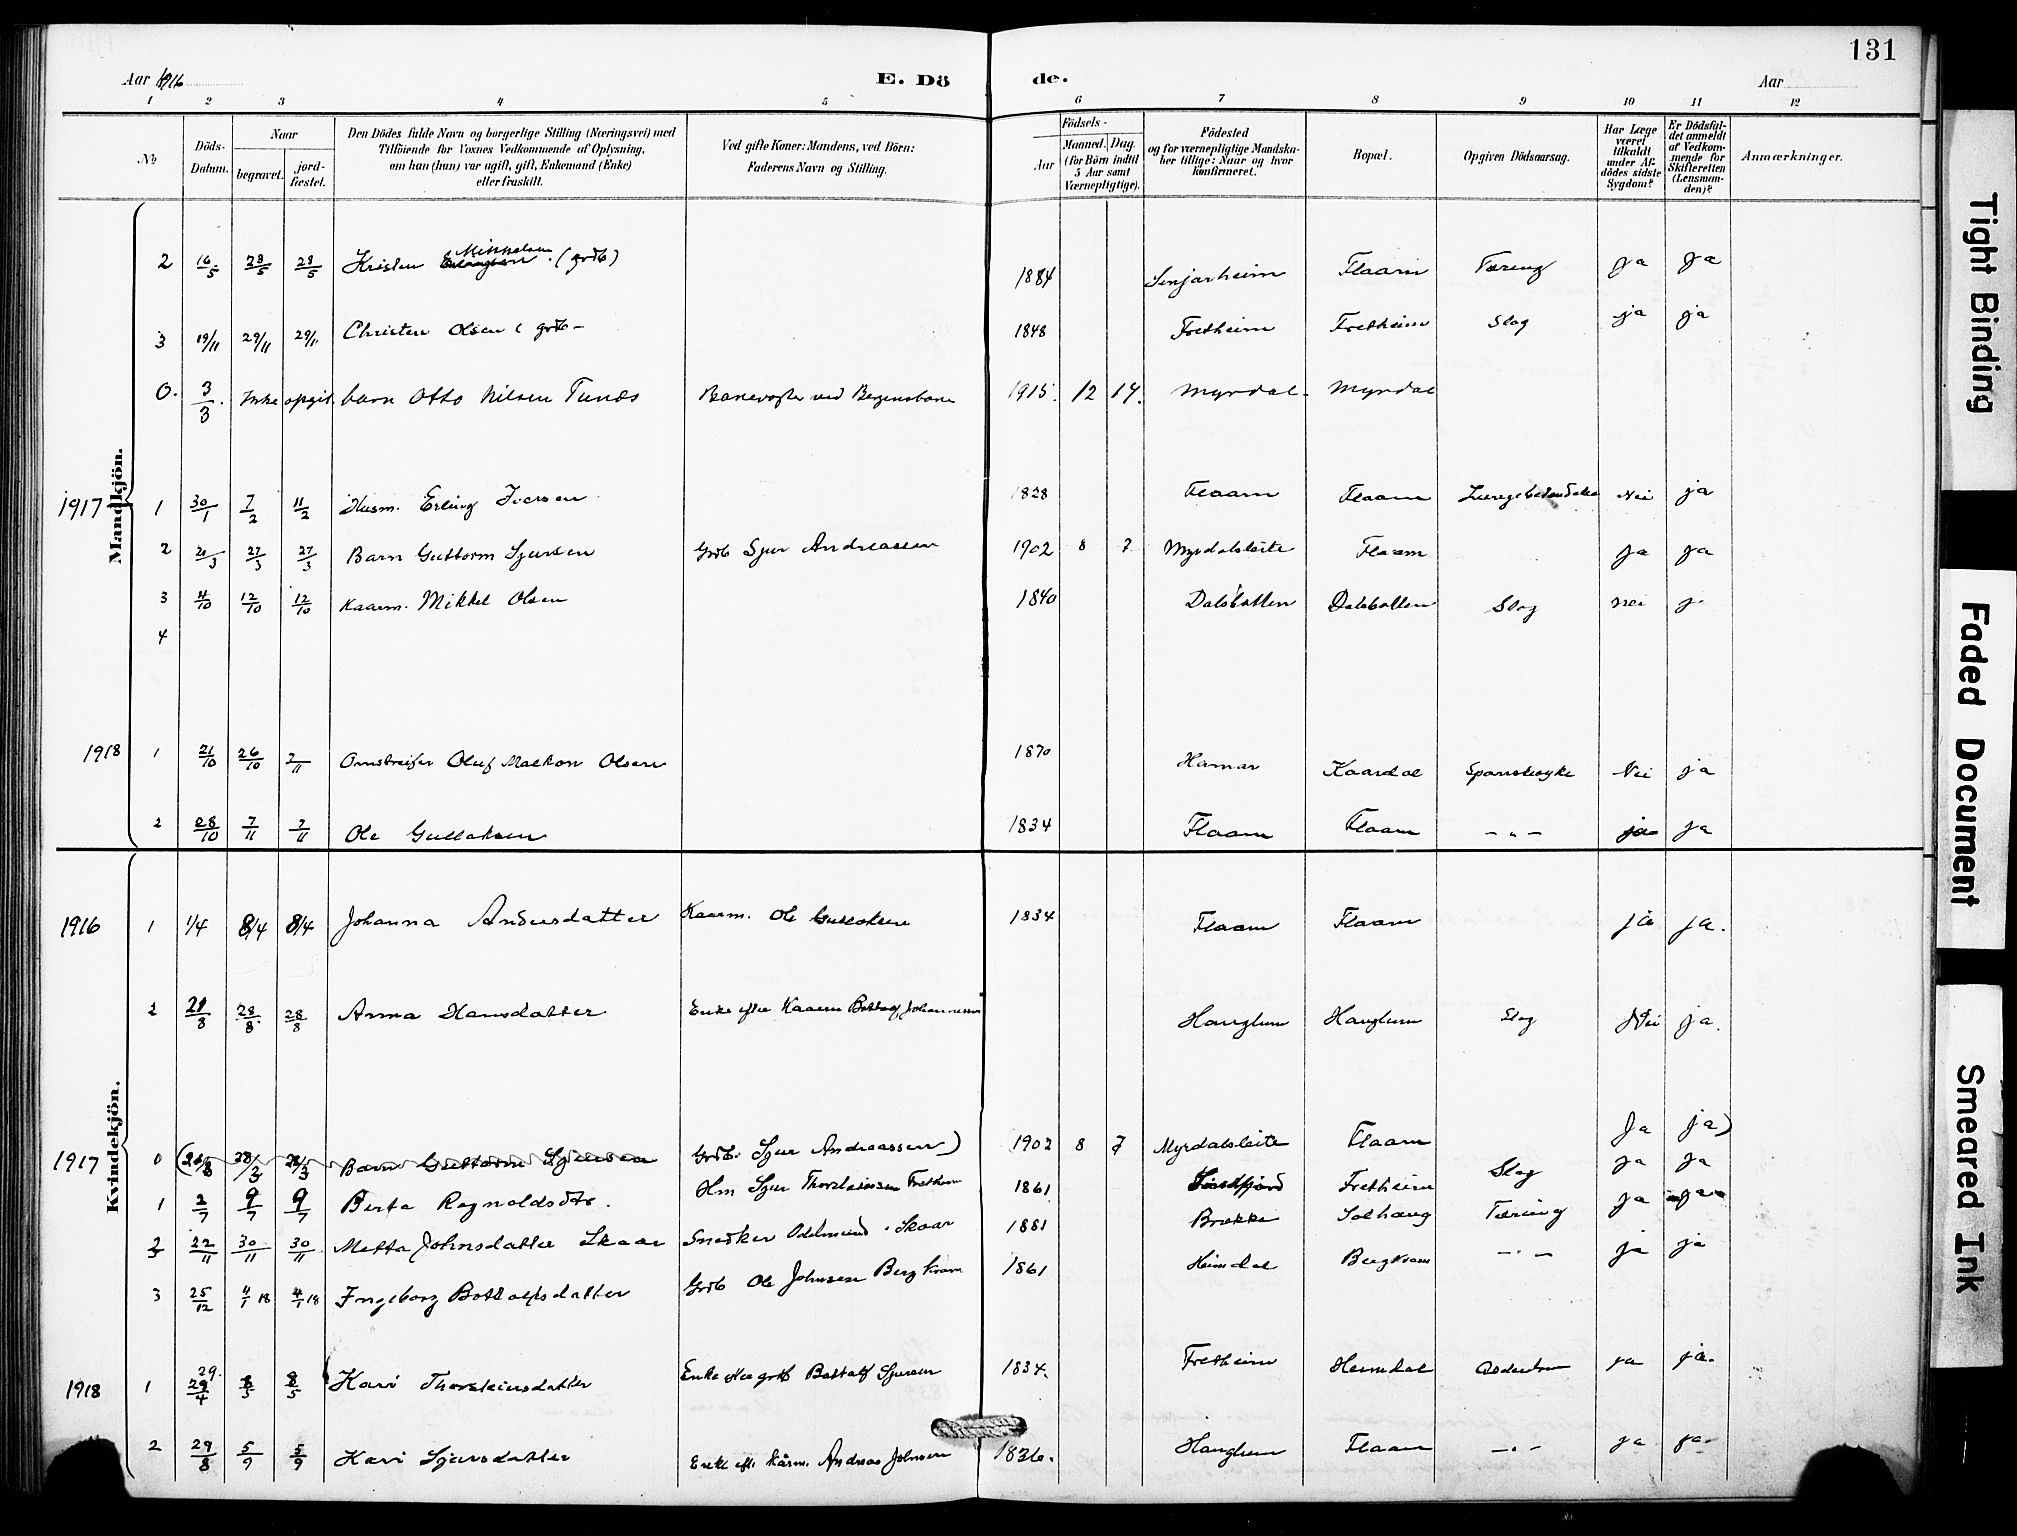 131
Aar 1916 E. Dö de. Aar
1 2 3 4 5 6 7 8 9 10 11 12
№
Döds-Datum.
Naar begravet. jordfæstet.
Den Dödes fulde Navn og borgerlige Stilling (Næringsvei) med Tilföiende for Voxnes Vedkommende af Oplysning, om han (hun) var ugift, gift, Enkemand (Enke) eller fraskilt.
Ved gifte Koner: Mandens, ved Börn: Faderens Navn og Stilling.
Födsels- Aar Maaned. Dag. (for Börn indtil 5 Aar samt Værnepligtige).
Födested og for værnepligtige Mandskaber tillige: Naar og hvor konfirmeret.
Bopæl.
Opgiven Dödsaarsag.
Har Læge været tilkaldt under Afdödes sidste Sygdom?
Er Dödsfaldet anmeldt af Vedkommende for Skifteretten (Lensmanden)?
Anmærkninger.
Mandkjön.
2 16/5 28/5 28/5 Kristen Mikkelsen (grdb) 1884 Flaam Tæring ja ja
3 19/11 29/11 29/11 Christen Olsen (grdb- 1848 Fretheim Fretheim Slag ja ja
0. 3/3 Ikke opgit. barn Otto Nilsen Tunds Banevogter ved Bergensbane 1915. 12 14. Myrdal Myrdal
1917 1 30/1 7/2 11/2 Husm. Erling Iversen 1828 Flaam Flaam Lungebetændelse Nei ja
2 21/3 27/3 27/3 Barn Guttorm Sjursen Grdb Sjur Andreassen 1902 8 7 Myrdalsleite Flaam ja ja
3 4/10 12/10 12/10 Kaarm. Mikkel Olsen 1840 Dalsbotten Dalsbotten Slag nei j-
4
1918 1 21/10 26/10 2/11 Omstreifer Oluf Olsen 1870 Hamar Kaardal Spanskesyke Nei ja
2 28/10 7/11 7/11 Ole Gullaksen 1834 Flaam Flaam -„- ja ja
Kvindekjön.
1916 1 1/4 8/4 8/4 Johanna Andersdatter Kaarm. Ole Gullaksen 1834 Flaam Flaam ja ja.
2 21/8 28/8 28/8 Anna Hansdatter Enke efter Kaarm Bottolf Johannessen Hauglum Hauglum Slag Nei ja.
1917 0 (21/3 28/3 28/3 Barn Guttorm Sjursen Grdb. Sjur Andreassen) 1902 8 7 Myrdalsleite Flaam Ja ja)
1 2/7 9/7 9/7 Berta Ragnoldsdtr. Hm Sjur Thorsteinsen Fretheim 1861 Fretheim Slag ja ja
2 22/11 30/11 30/11 Metta Johnsdatter Skaar Snedker Odelmund Skaar 1881 Brekke Solhaug Tæring ja ja
3 25/12 4/1 18 4/1 18 Ingeborg Bottolfsdatter Grdb Ole Johnsen Bergkvam 1861 Heimdal Bergkvam -„- ja ja
1918 1 29. 29/4 8/5 8/5 Kari Thorsteinsdatter Enke efter grdb Bottolf Sjursen 1834. Fretheim Heimdal Alderdom ja ja.
2 29/8 5/9 5/9 Kari Sjursdatter Enke eft. kårm. Andreas Johnsen 1836. Hauglum Flaam -„- ja ja
Tight Binding
Faded Document
Smeared Ink